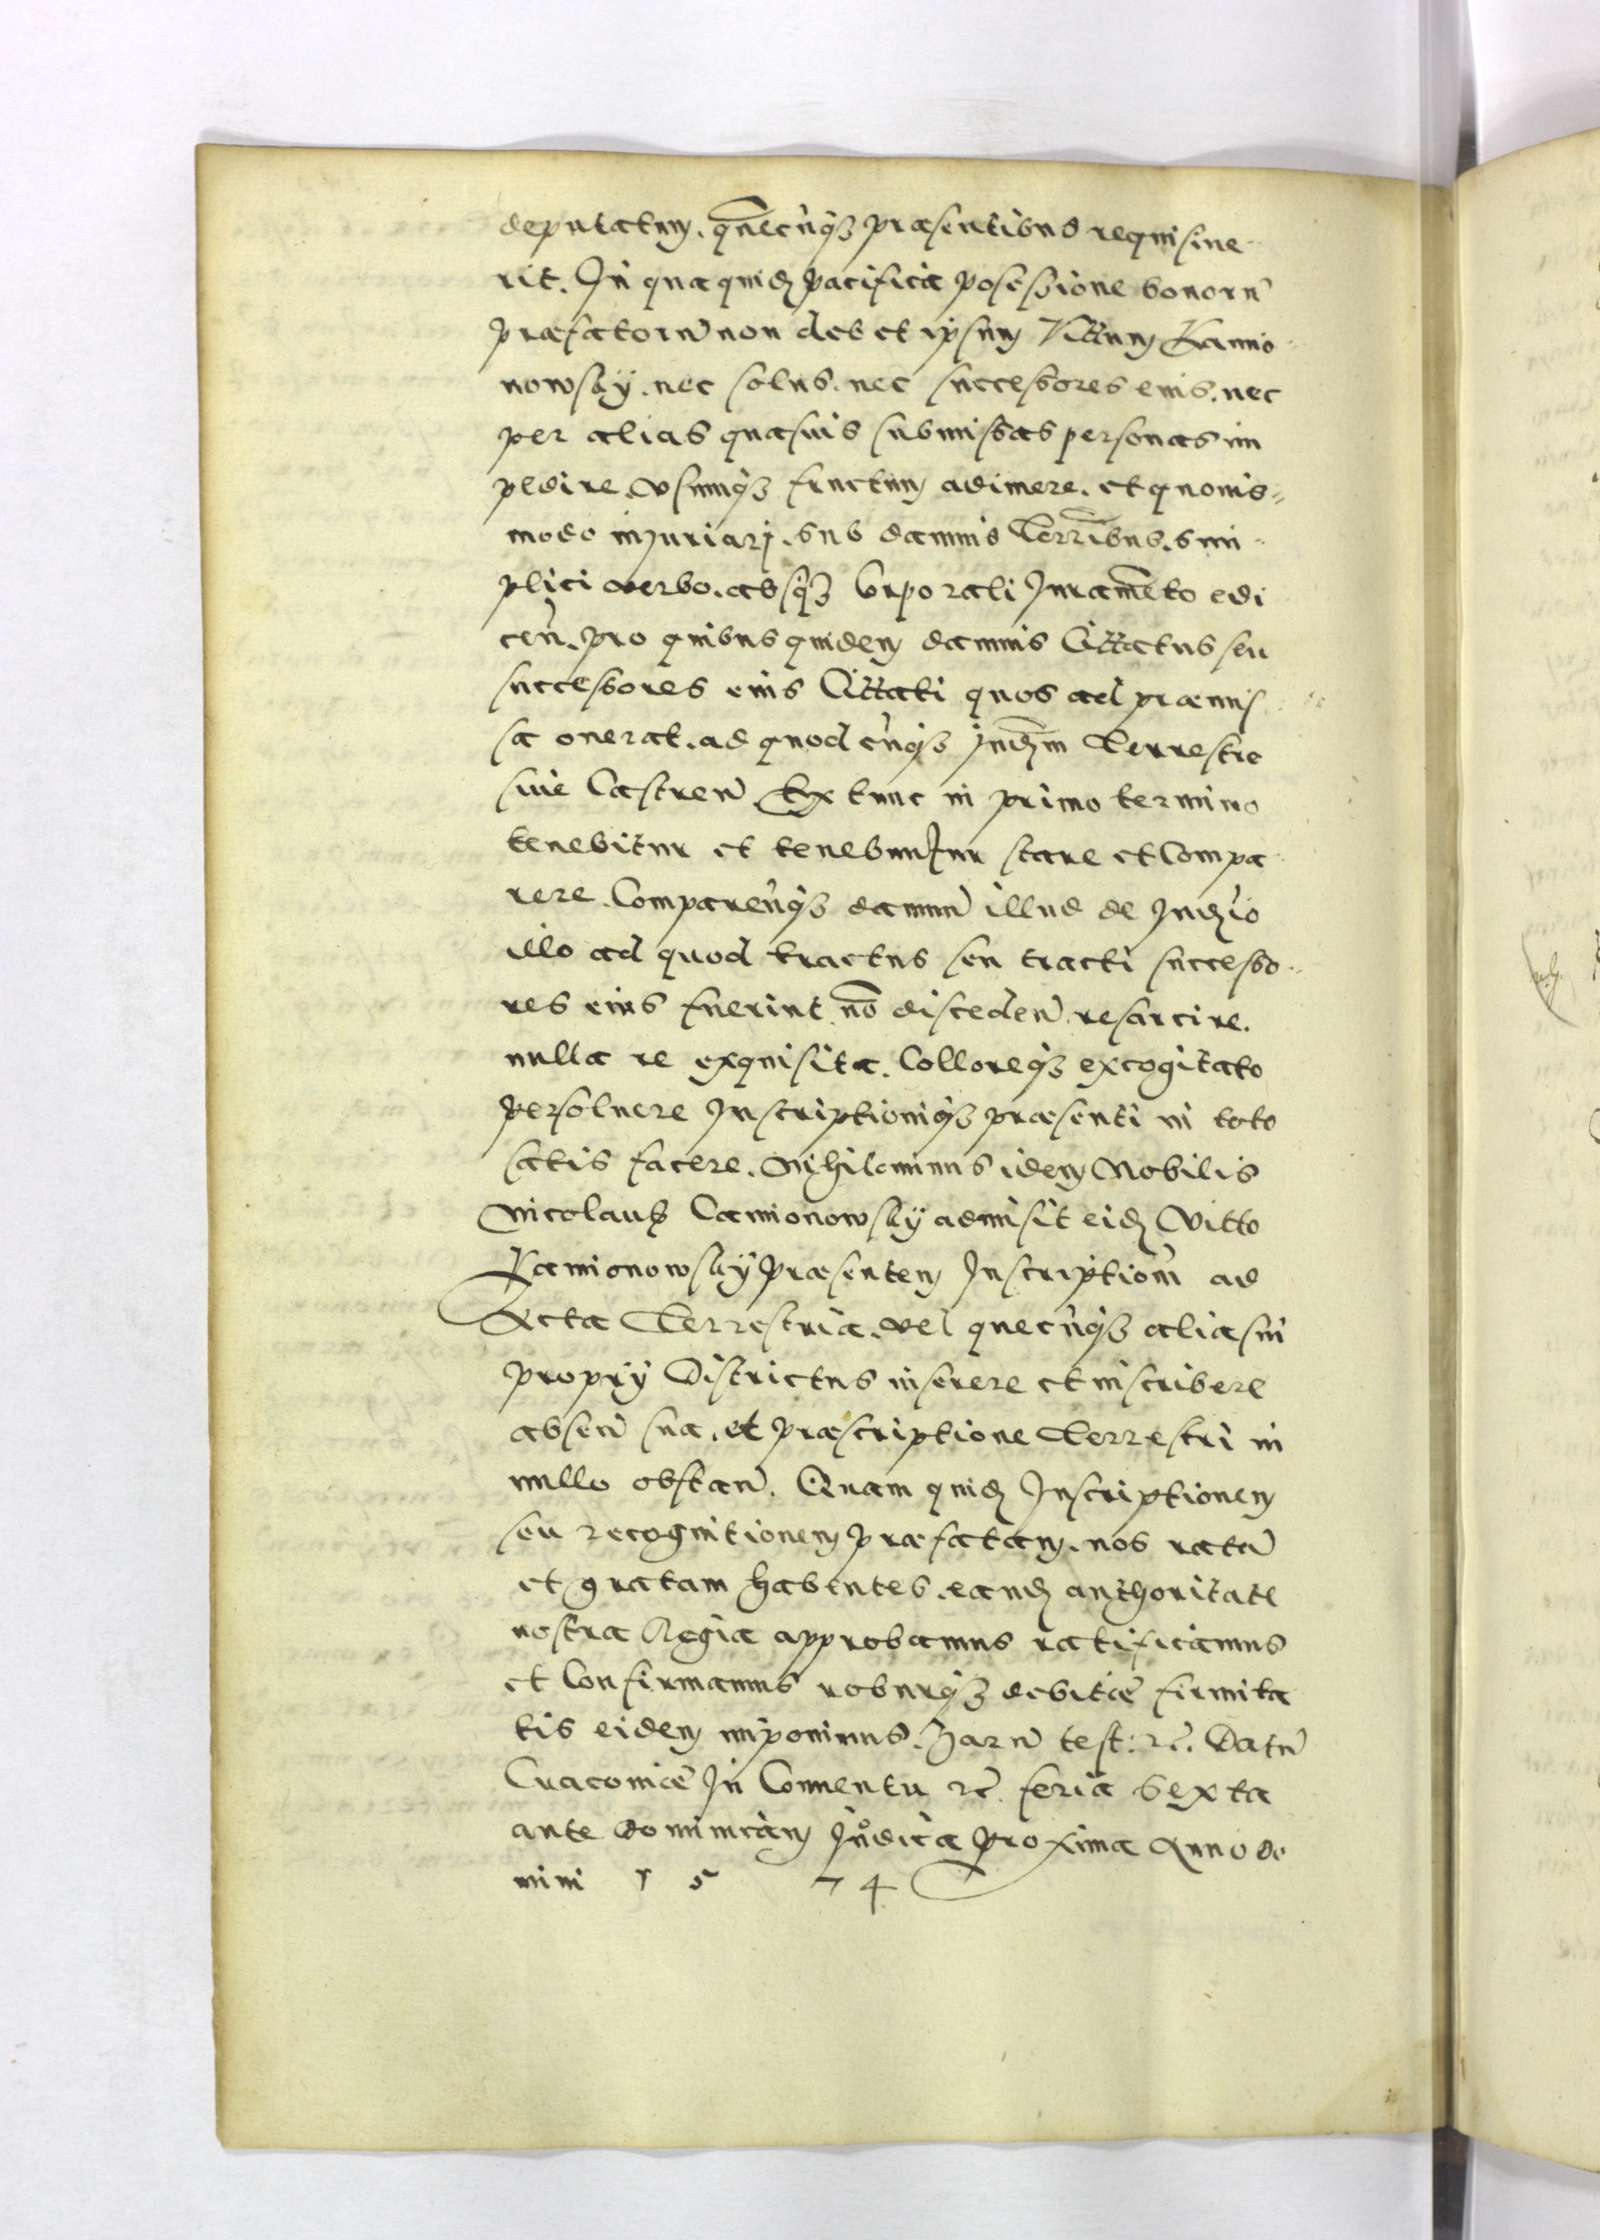 deputatum. quencunqȝ præsentibus requisiue-
rit. In qua quidem pacifica posessione bonorũ
præfatorũ non debet ipsum Vittum Kamio-
nowsky. nec solus. nec successores eius. nec
per alias quasuis submissas personas im
pedire. vsumqȝ fructum adimere. et quouis=
modo iniuriari. sub damnis Terribus. sim-
plici verbo. absqȝ Corporali Juramẽto edi
ceñ. pro quibus quidem damnis Cittatus seu
successores eius Cittati quos ad præmis
sa onerat. ad quodcũqȝ Judm Terrestre
siue Castreñ Ex tunc in primo termino
tenebitur et tenebuntur stare et Compa
rere. Compareñqȝ damnũ illud de Judicio
illo ad quod tractus seu tracti successo-
res eius fuerint nõ discedeñ resarcire.
nulla re exquisita. Colloreqȝ excogitato
persoluere Inscriptioniqȝ præsenti in toto
satis facere. Nihilominus idem Nobilis
Nicolaus Camionowsky admisit eidem Vitto
Kamionowsky Præsentem Inscriptioñ ad
Acta Terrestria. vel quecũqȝ alia sui
proprÿ Districtus inserere et inscribere
abseñ sua. et præscriptione Terrestri in
nullo obstañ. Quam quidem Inscriptionem
seu recognitionem præfatam. nos ratã
et gratam habentes. eandem authoritate
nostra Regia approbamus ratificamus
et Confirmamus roburqȝ debitæ firmita
tis eidem imponimus. Harũ test: rc̃. Datũ
Cracouiæ In Conuentu rc̃ feria Sexta
ante dominicam Judica proxima Anno do
mini 1 5 7 4